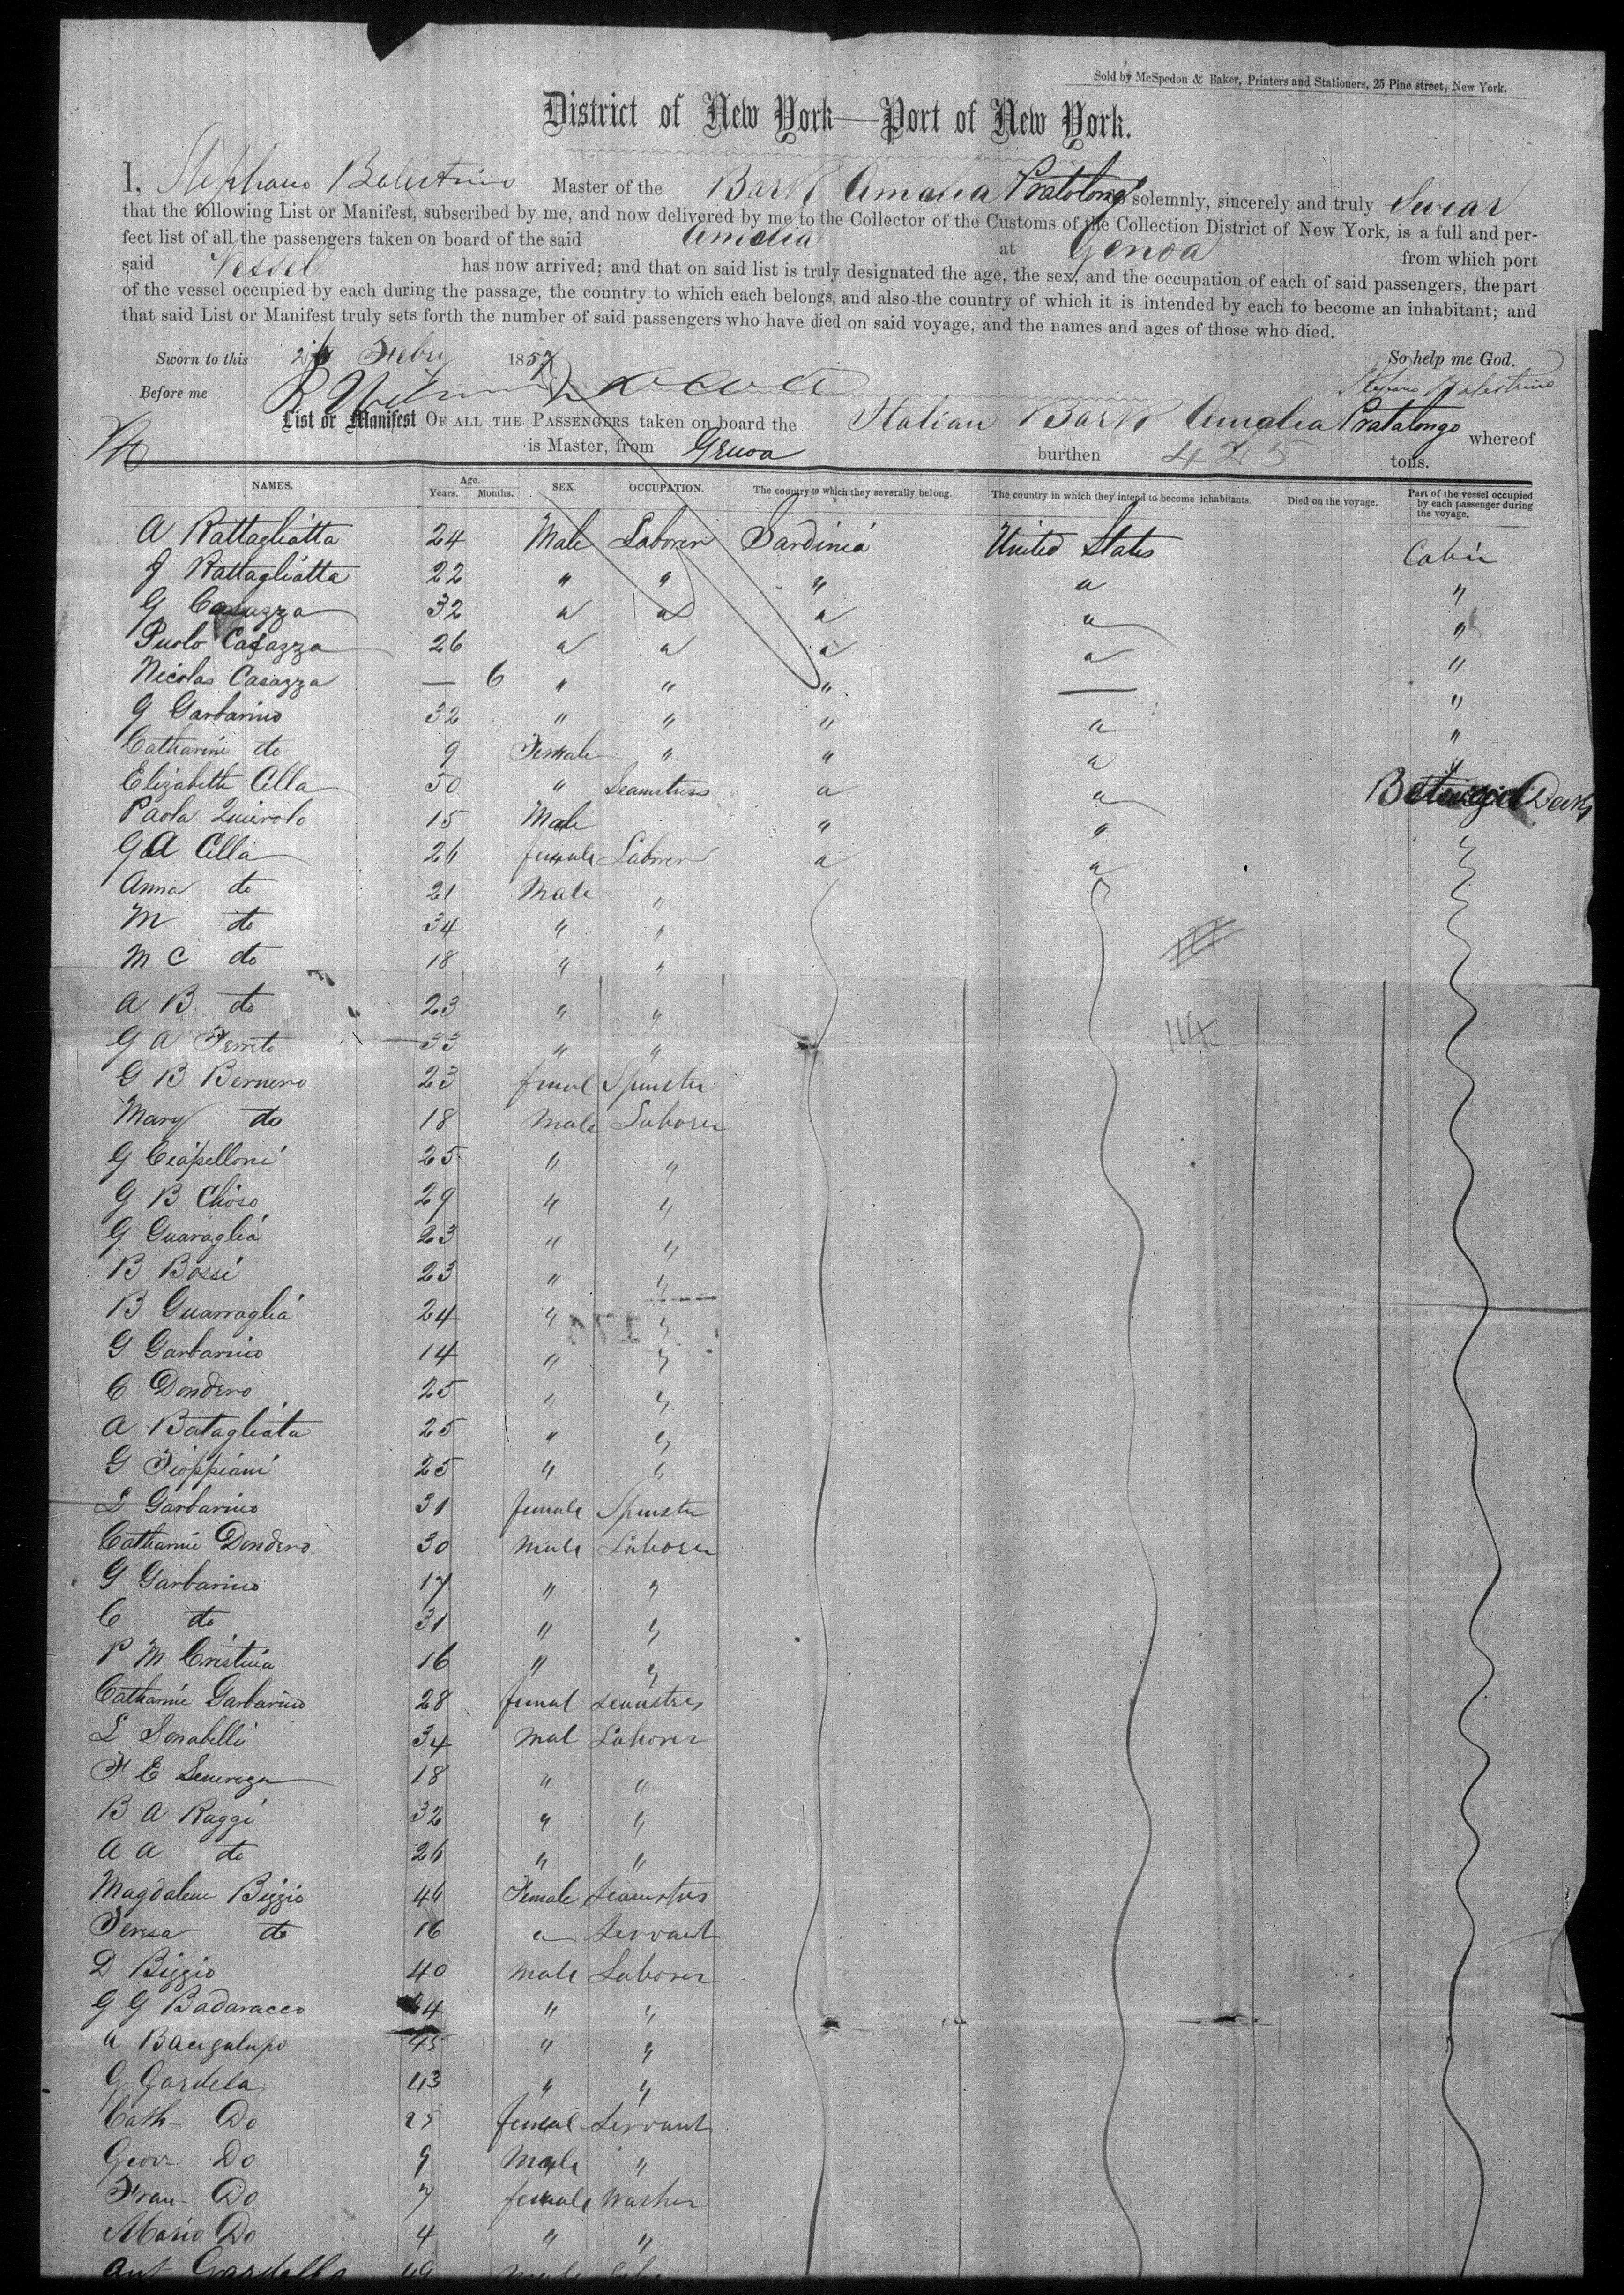 Sold by McSpedon & Baker, Printers and Stationers, 25 Pine street, New York.
District of New York—Port of New York.
I, Stephano Balestrino Master of the Bark Amelia Pratolongo solemnly, sincerely and truly Swear
that the following List or Manifest, subscribed by me, and now delivered by me to the Collector of the Customs of the Collection District of New York, is a full and per-
fect list of all the passengers taken on board of the said Amelia at Genoa from which port
said Vessel has now arrived; and that on said list is truly designated the age, the sex, and the occupation of each of said passengers, the part
of the vessel occupied by each during the passage, the country to which each belongs, and also the country of which it is intended by each to become an inhabitant; and
that said List or Manifest truly sets forth the number of said passengers who have died on said voyage, and the names and ages of those who died.
Sworn to this Feby 1857 So help me God.
Before me Stefano Balestrino
List or Manifest OF ALL THE PASSENGERS taken on board the Italian Bark Amelia Pratalongo whereof
is Master, from Genoa burthen 425 tons.
NAMES. Age. Years. Months. SEX. OCCUPATION. The country to which they severally belong. The country in which they intend to become inhabitants. Died on the voyage. Part of the vessel occupied by each passenger during the voyage.
A Rattagliatta 24 Male Laborer Sardinia United States Cabin
J Rattagliatta 22 " " " " "
G Casazza 32 " " " " "
Puolo Casazza 26 " " " " "
Nicolas Casazza — 6 " " " — "
G Garbarino 32 " " " " "
Catharine do 9 Female " " " "
Elizabeth Cella 50 " Seamstress " " Between Decks
Paola Quierolo 15 Male " "
G A Cella 26 female Laborer " " "
Anna do 21 Male " "
M do 34 " "
M C do 18 " "
A B do 23 " "
G A Ferreto 33 " "
114
G B Bernero 23 femal Spinster
Mary do 18 Male Laborer
G Ciapelloni 25 " "
G B Chioso 29 " "
G Guaraglia 23 " "
B Bossi 23 " "
B Guarraglia 24 " "
G Garbarino 14 " "
C Dondero 25 " "
A Batagliata 25 " "
G Fioppiani 25 " "
L Garbarino 31 female Spinster
Catharine Dondero 30 Male Laborer
G Garbarino 17 " "
C do 31 " "
P M Cristina 16 " "
Catharine Garbarino 28 femal Seamstres
L Sonabelli 34 Mal Laborer
F E 18 " "
B A Raggi 32 " "
A A do 26 " "
Magdalene Biggio 46 Female Seamstres
Teresa do 16 " Servant
D Biggio 40 Male Laborer
G G Badaracco 24 " "
A Bacigalupo 45 " "
G Gardela 43 " "
Cath- Do 25 femal Servant
Geov- Do 9 Male "
Fran- Do 7 female Washer
Maria Do 4 " "
Ant Gardella 49 Male